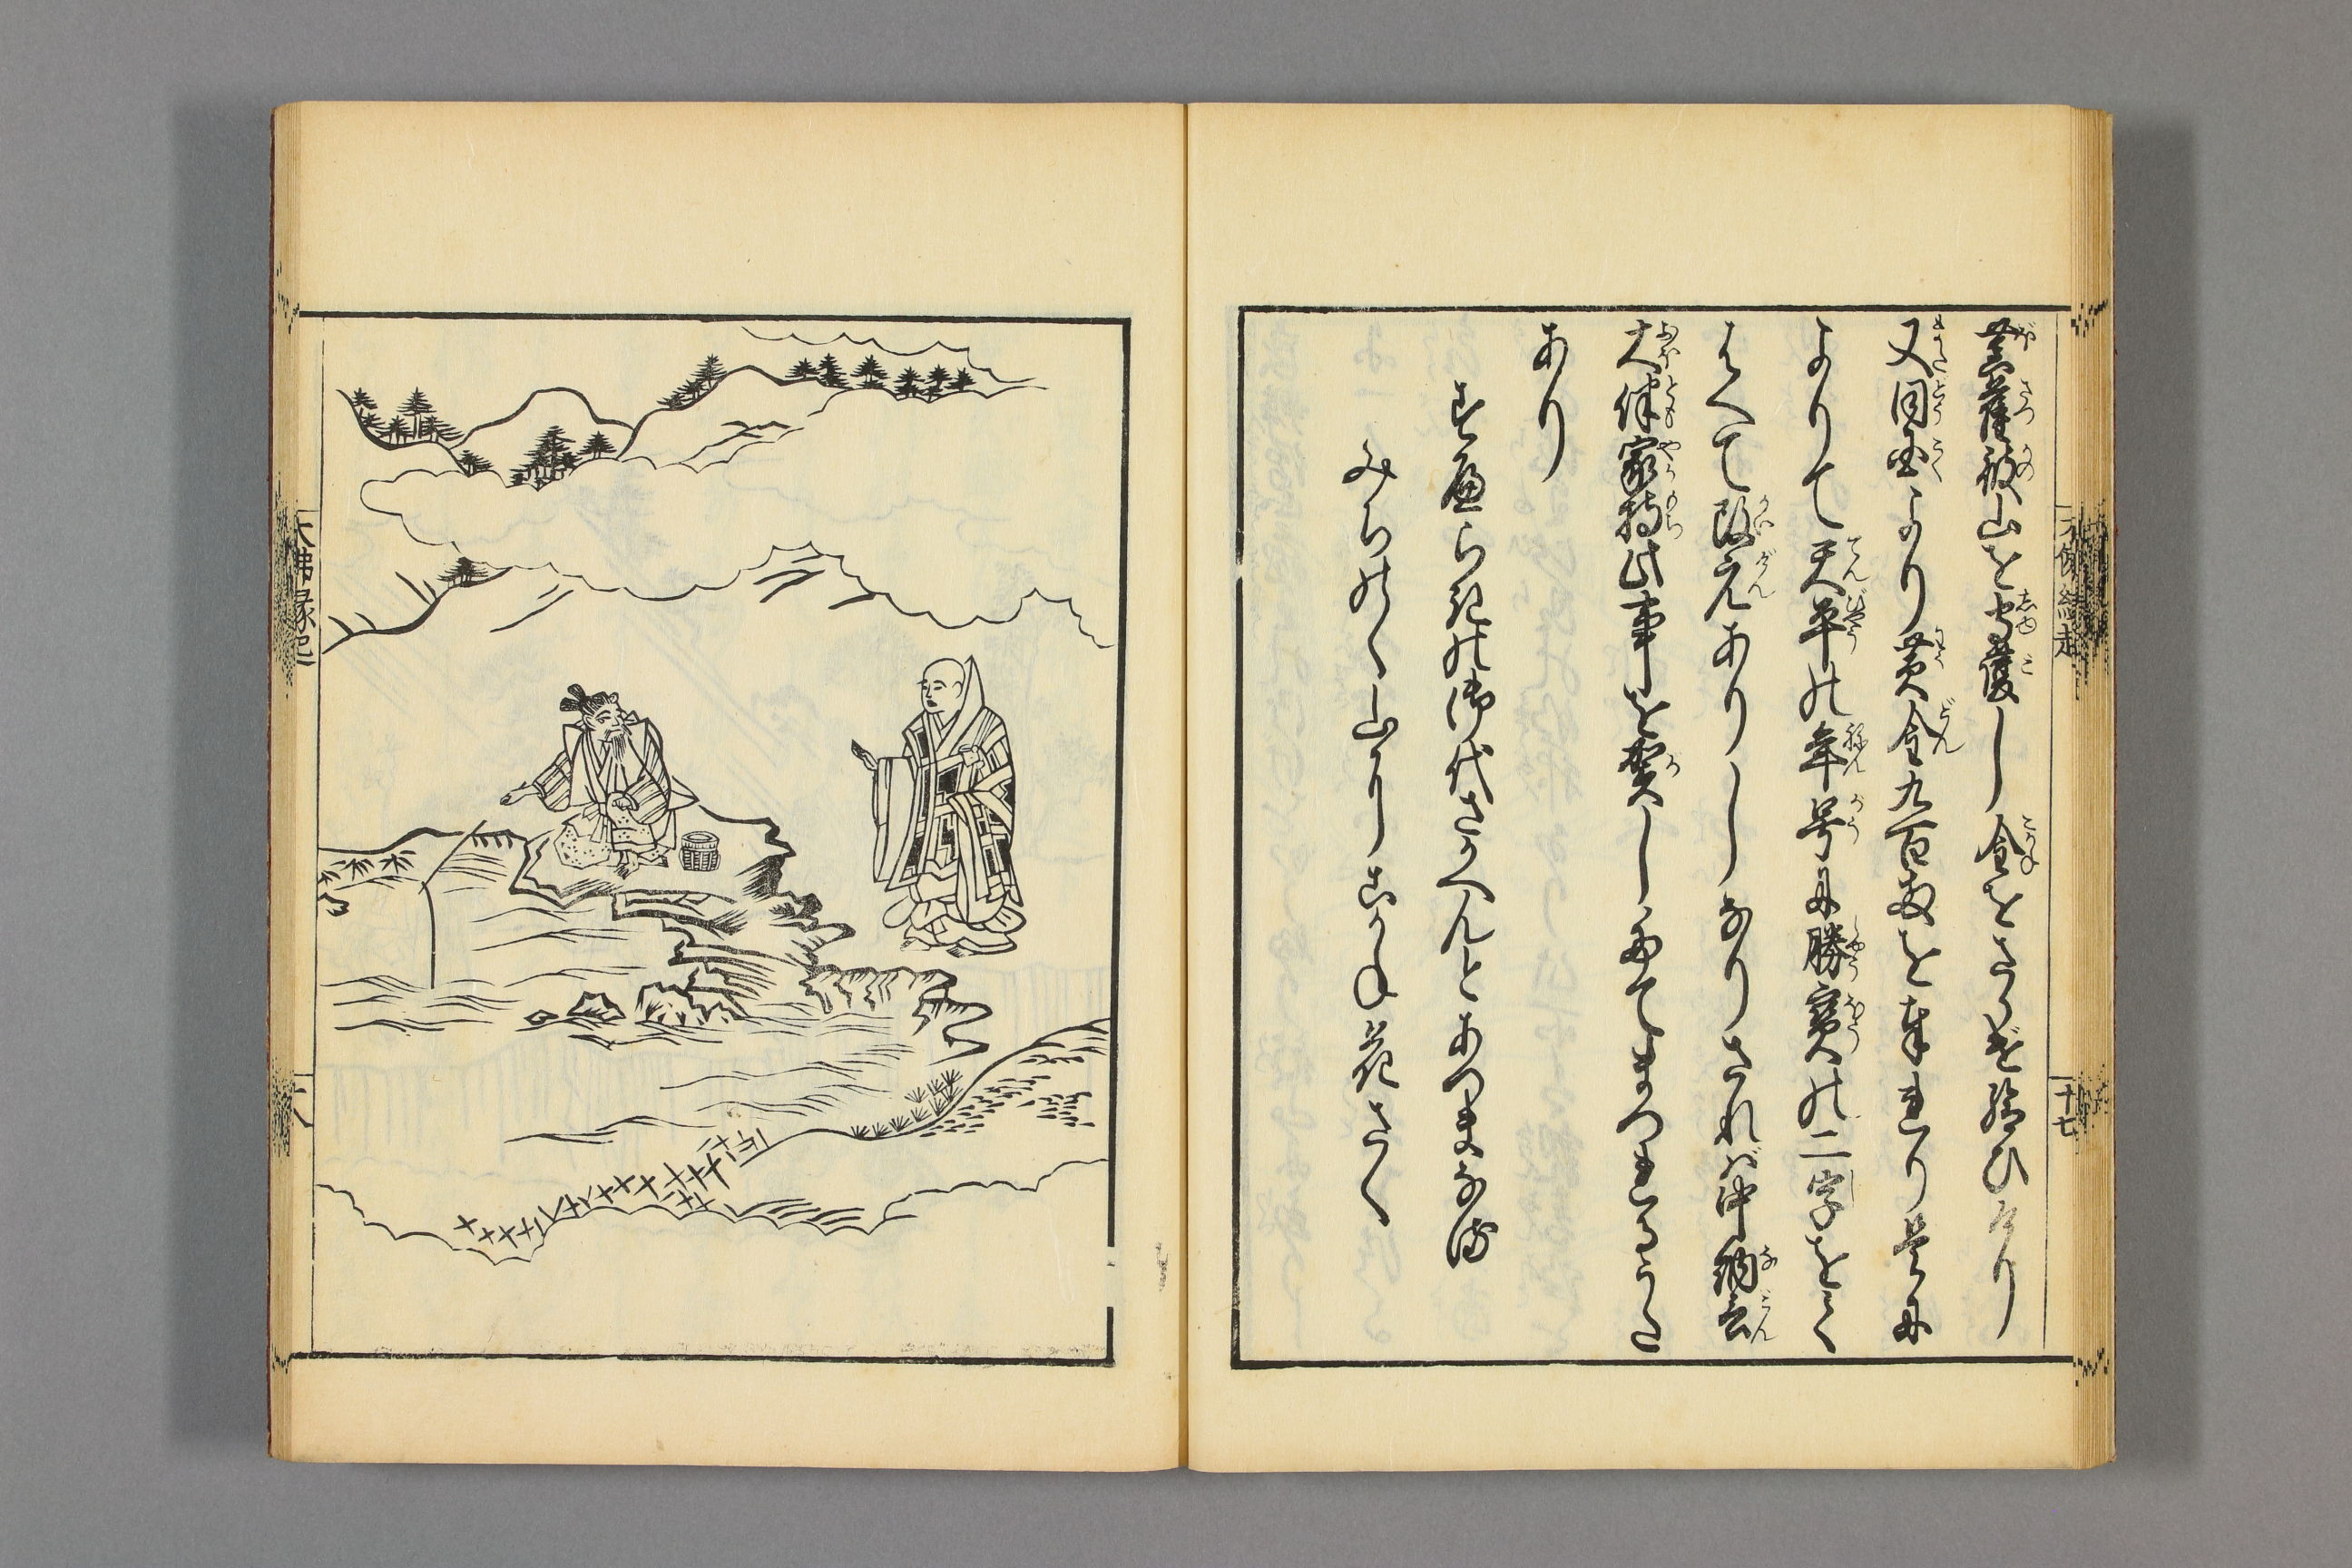 大佛縁起
十七
菩薩彼山を守護し金をさゝげ給ひけり
又同国より黄金九百両を奉れり是に
よりて天平の年号に勝寳の二字をく
はへて改元ありしなりされば中納言
大伴家持此事を賀したてまつれるうた
あり
すめらきの御代さかへんとあつまなる
みちのく山にこかね花さく
大佛縁起
十八